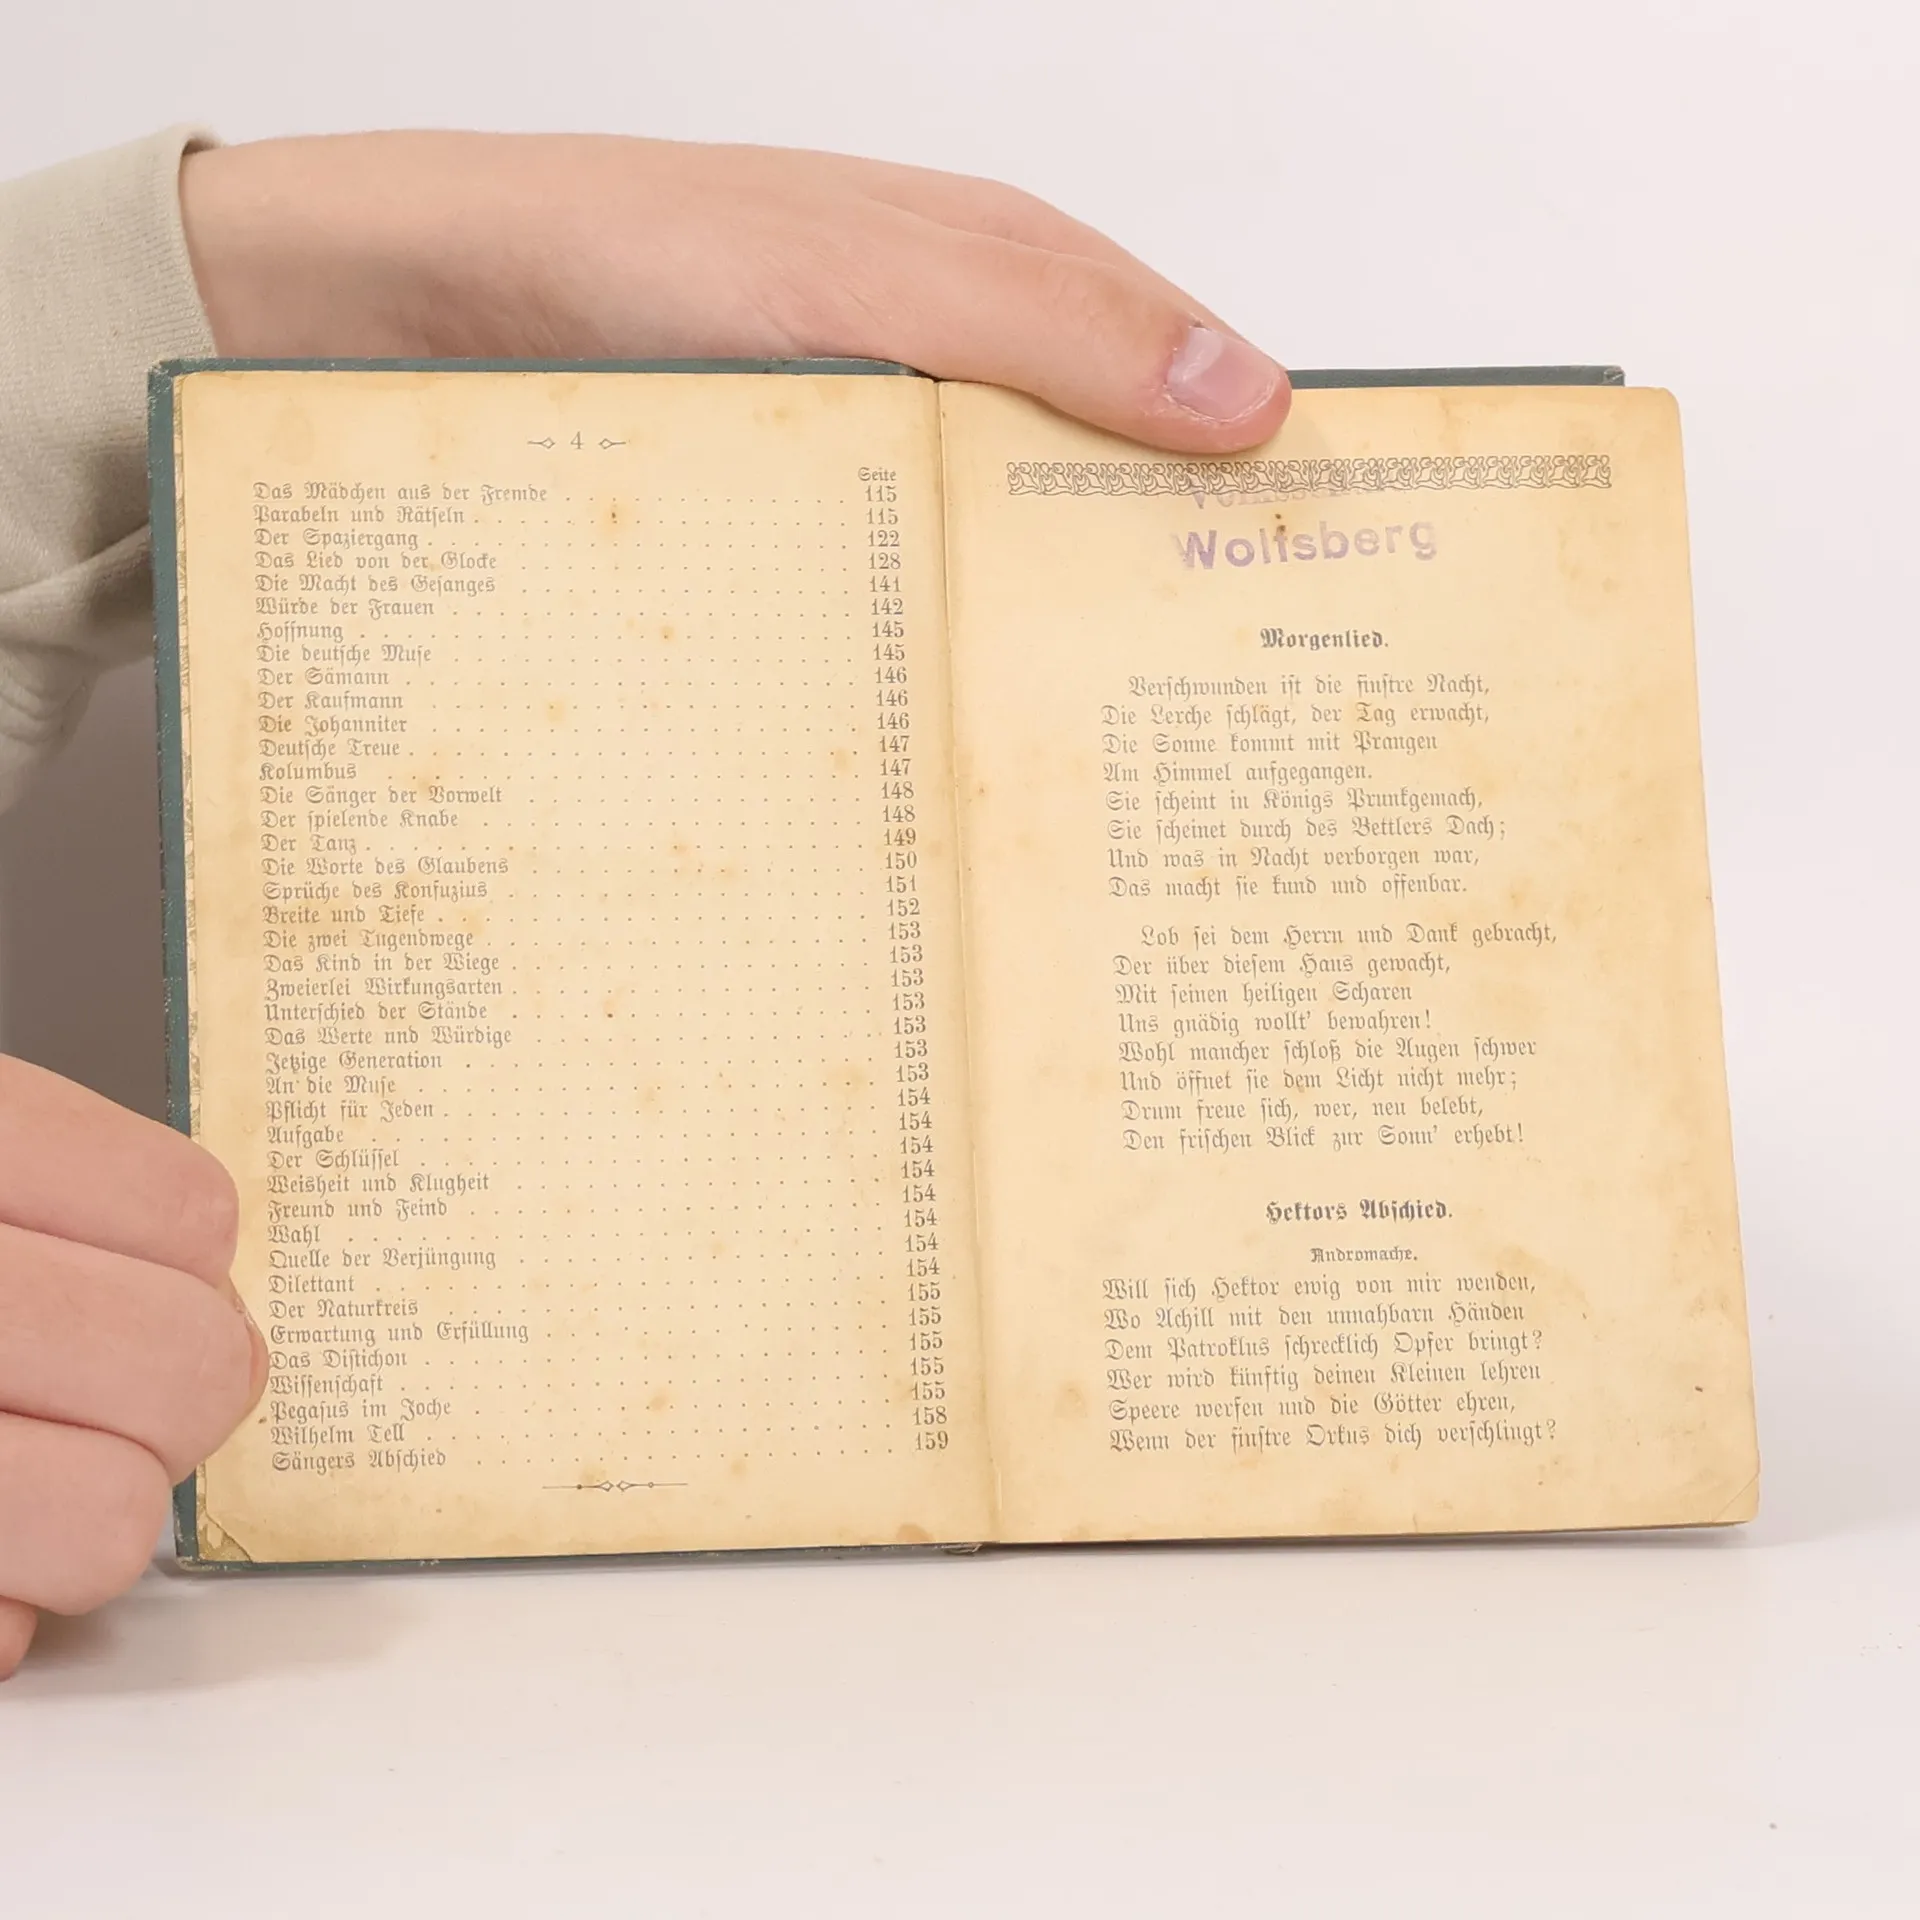 4
Seite
Das Mädchen aus der Fremde . . . . . . . . . . . . 115
Parabeln und Rätseln . . . . . . . . . . . . 115
Der Spaziergang . . . . . . . . . . . . 122
Das Lied von der Glocke . . . . . . . . . . . . 128
Die Macht des Gesanges . . . . . . . . . . . . 141
Würde der Frauen . . . . . . . . . . . . 142
Hoffnung . . . . . . . . . . . . 145
Die deutsche Muse . . . . . . . . . . . . 145
Der Sämann . . . . . . . . . . . . 146
Der Kaufmann . . . . . . . . . . . . 146
Die Johanniter . . . . . . . . . . . . 146
Deutsche Treue . . . . . . . . . . . . 147
Kolumbus . . . . . . . . . . . . 147
Die Sänger der Vorwelt . . . . . . . . . . . . 148
Der spielende Knabe . . . . . . . . . . . . 148
Der Tanz . . . . . . . . . . . . 149
Die Worte des Glaubens . . . . . . . . . . . . 150
Sprüche des Konfuzius . . . . . . . . . . . . 151
Breite und Tiefe . . . . . . . . . . . . 152
Die zwei Tugendwege . . . . . . . . . . . . 153
Das Kind in der Wiege . . . . . . . . . . . . 153
Zweierlei Wirkungsarten . . . . . . . . . . . . 153
Unterschied der Stände . . . . . . . . . . . . 153
Das Werte nnd Würdige . . . . . . . . . . . . 153
Jetzige Generation . . . . . . . . . . . . 153
An die Muse . . . . . . . . . . . . 153
Pflicht für Jeden . . . . . . . . . . . . 154
Aufgabe . . . . . . . . . . . . 154
Der Schlüssel . . . . . . . . . . . . 154
Weisheit und Klugheit . . . . . . . . . . . . 154
Freund und Feind . . . . . . . . . . . . 154
Wahl . . . . . . . . . . . . 154
Quelle der Verjüngung . . . . . . . . . . . . 154
Dilettant . . . . . . . . . . . . 154
Der Naturkreis . . . . . . . . . . . . 155
Erwartung und Erfüllung . . . . . . . . . . . . 155
Das Distichon . . . . . . . . . . . . 155
Wissenschaft . . . . . . . . . . . . 155
Pegasus im Joche . . . . . . . . . . . . 155
Wilhelm Tell . . . . . . . . . . . . 158
Sängers Abschied . . . . . . . . . . . . 159
Wolfsberg
Morgenlied.
Verschwunden ist die finstre Nacht,
Die Lerche schlägt, der Tag erwacht,
Die Sonne kommt mit Prangen
Am Himmel aufgegangen.
Sie scheint in Königs Prunkgemach,
Sie scheinet durch des Bettlers Dach;
Und was in Nacht verborgen war,
Das macht sie kund und offenbar.
Lob sei dem Herrn und Dank gebracht,
Der über diesem Haus gewacht,
Mit seinen heiligen Scharen
Uns gnädig wollt' bewahren!
Wohl mancher schloß die Augen schwer
Und öffnet sie dem Licht nicht mehr;
Drum freue sich, wer, neu belebt,
Den frischen Blick zur Sonn' erhebt!
Hektors Abschied.
Andromache.
Will sich Hektor ewig von mir wenden,
Wo Achill mit den unnahbarn Händen
Dem Patroklus schrecklich Opfer bringt?
Wer wird künftig deinen Kleinen lehren
Speere werfen und die Götter ehren,
Wenn der finstre Orkus dich verschlingt?